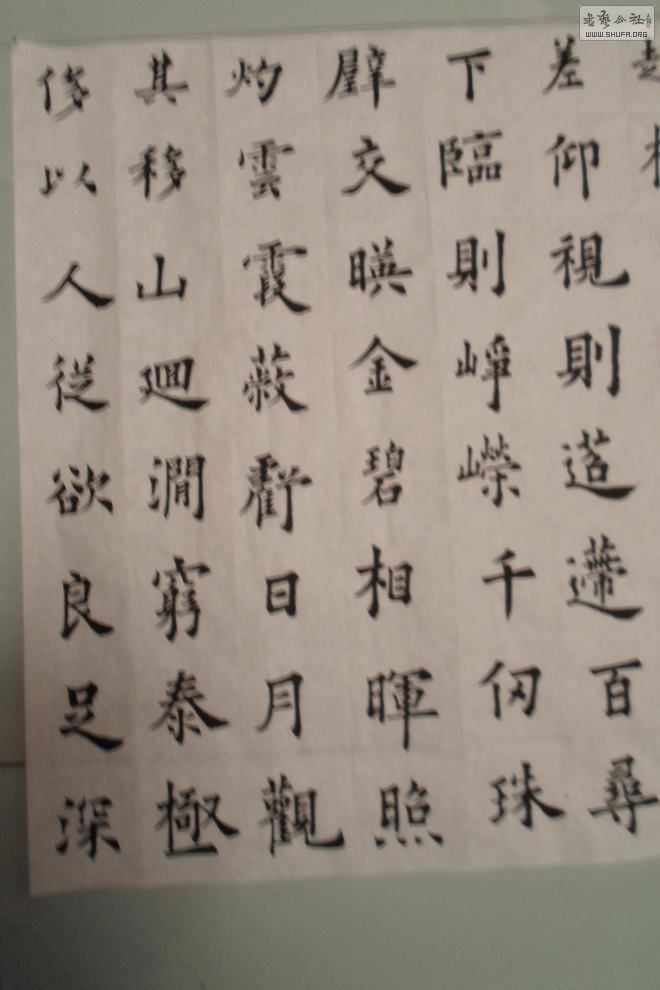 差仰視則迢遰百尋
下臨則崢嶸千仞珠
璧交暎金碧相暉照
灼雲霞蔽虧日月觀
其移山迴澗窮泰極
侈以人從欲良足深
書藝公社
WWW.SHUFA.ORG